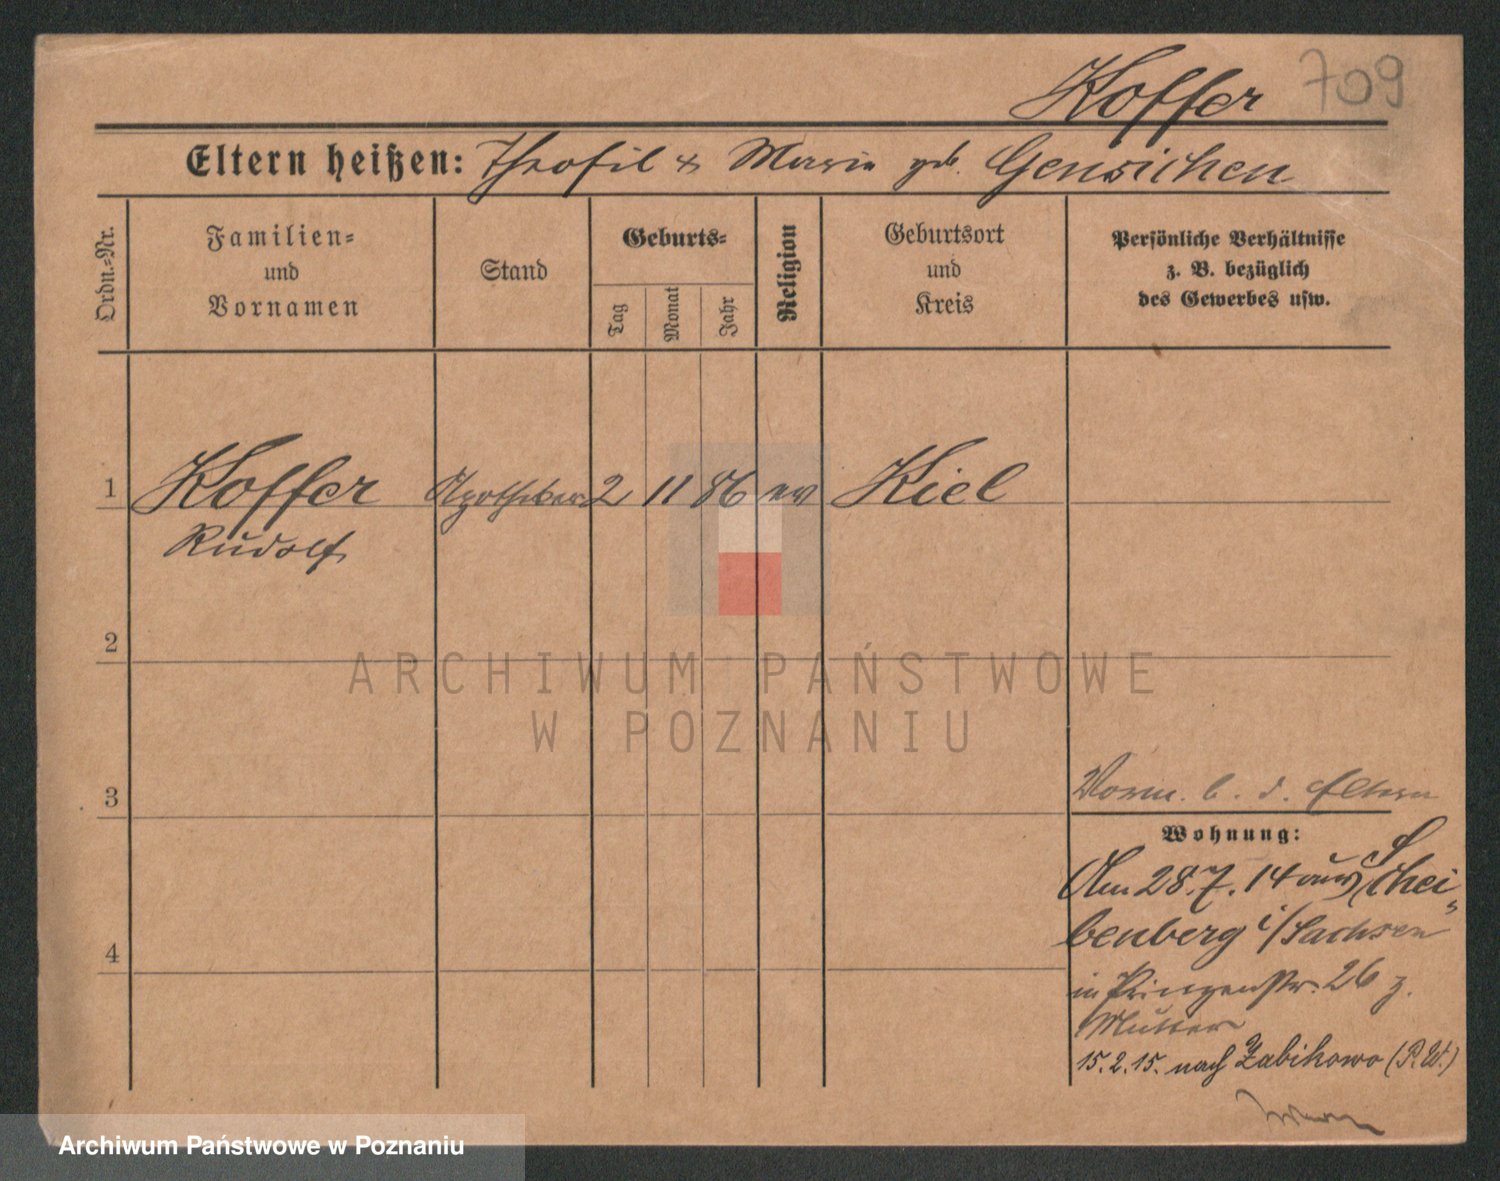 Koffer 709
Eltern heißen: Theofil & Marie geb. Gensichen
Ordn.-Nr.
Familien-
und
Vornamen
Stand
Geburts-
Tag
Monat
Jahr
Religion
Geburtsort
und
Kreis
Persönliche Verhältnisse
z. B. bezüglich
des Gewerbes usw.
1 Koffer Apotheker 2 11 86 ev Kiel
Rudolf
2
ARCHIWUM PAŃSTWOWE
W POZNANIU
Vorm. b. d. Eltern
3
Wohnung:
Am 28.7.14 aus Schei-
benberg i/Sachsen
4
in Prinzenstr. 26 z.
Mutter
15.2.15. nach Zabikowo (P.W.)
Archiwum Państwowe w Poznaniu